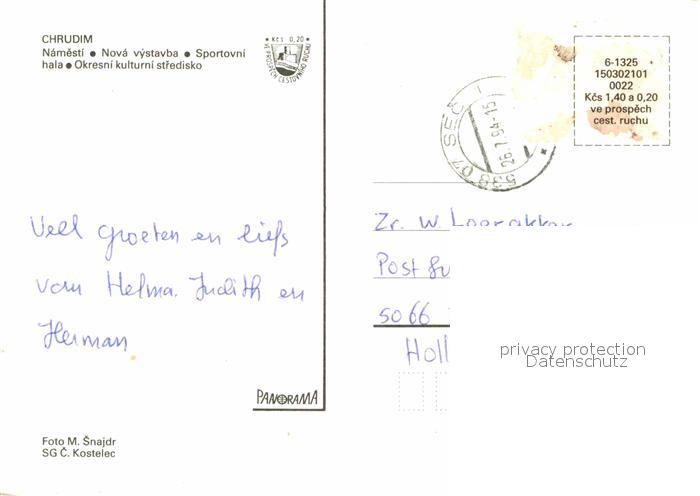 CHRUDIM
Náměstí ● Nová výstavba ● Sportovní
hala ● Okresní kulturní středisko
• Kčs 0,20 •
VE PROSPĚCH CESTOVNÍHO RUCHU
6-1325
150302101
0022
Kčs 1,40 a 0,20
ve prospěch
cest. ruchu
538 07 SEČ 1
26.7.94-15
Veel groeten en liefs
van Helma. Judith en
Herman
Zr. W.
Post
5066
Holl
privacy protection
Datenschutz
PANORAMA
Foto M. Šnajdr
SG Č. Kostelec